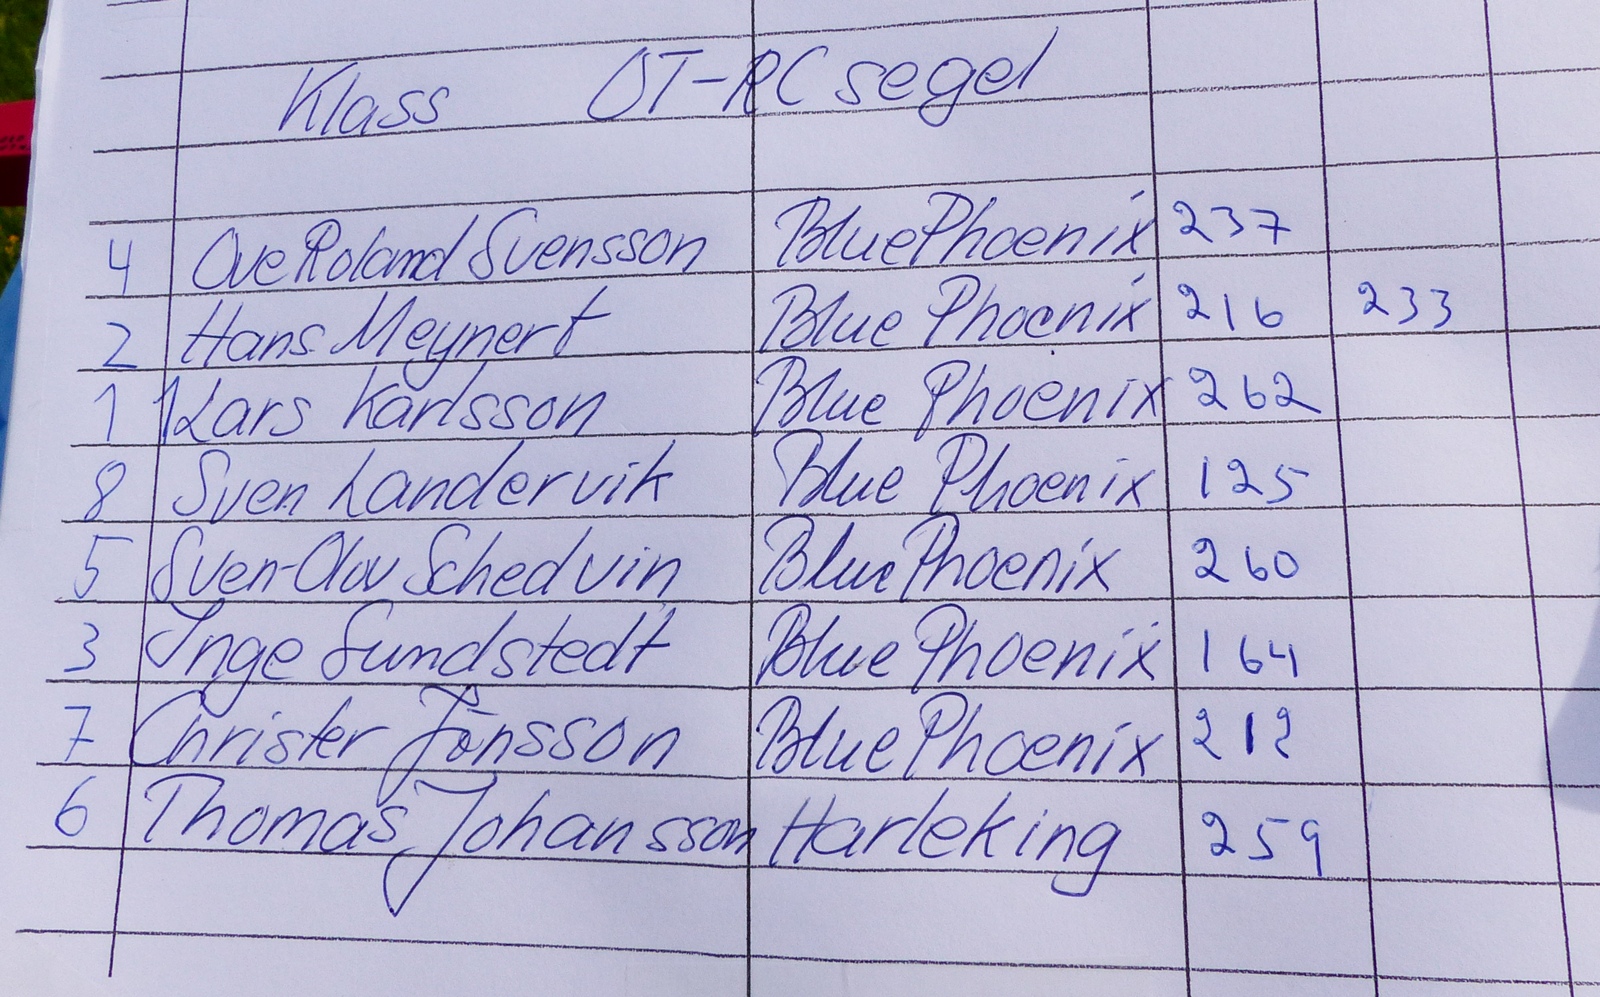 Klass OT-RC segel
4 Ove Roland Svensson Blue Phoenix 237
2 Hans Meynert Blue Phoenix 216 233
1 Lars Karlsson Blue Phoenix 262
8 Sven Landervik Blue Phoenix 125
5 Sven-Olov Schedvin Blue Phoenix 260
3 Inge Sundstedt Blue Phoenix 164
7 Christer Jönsson Blue Phoenix 212
6 Thomas Johansson Harleking 259